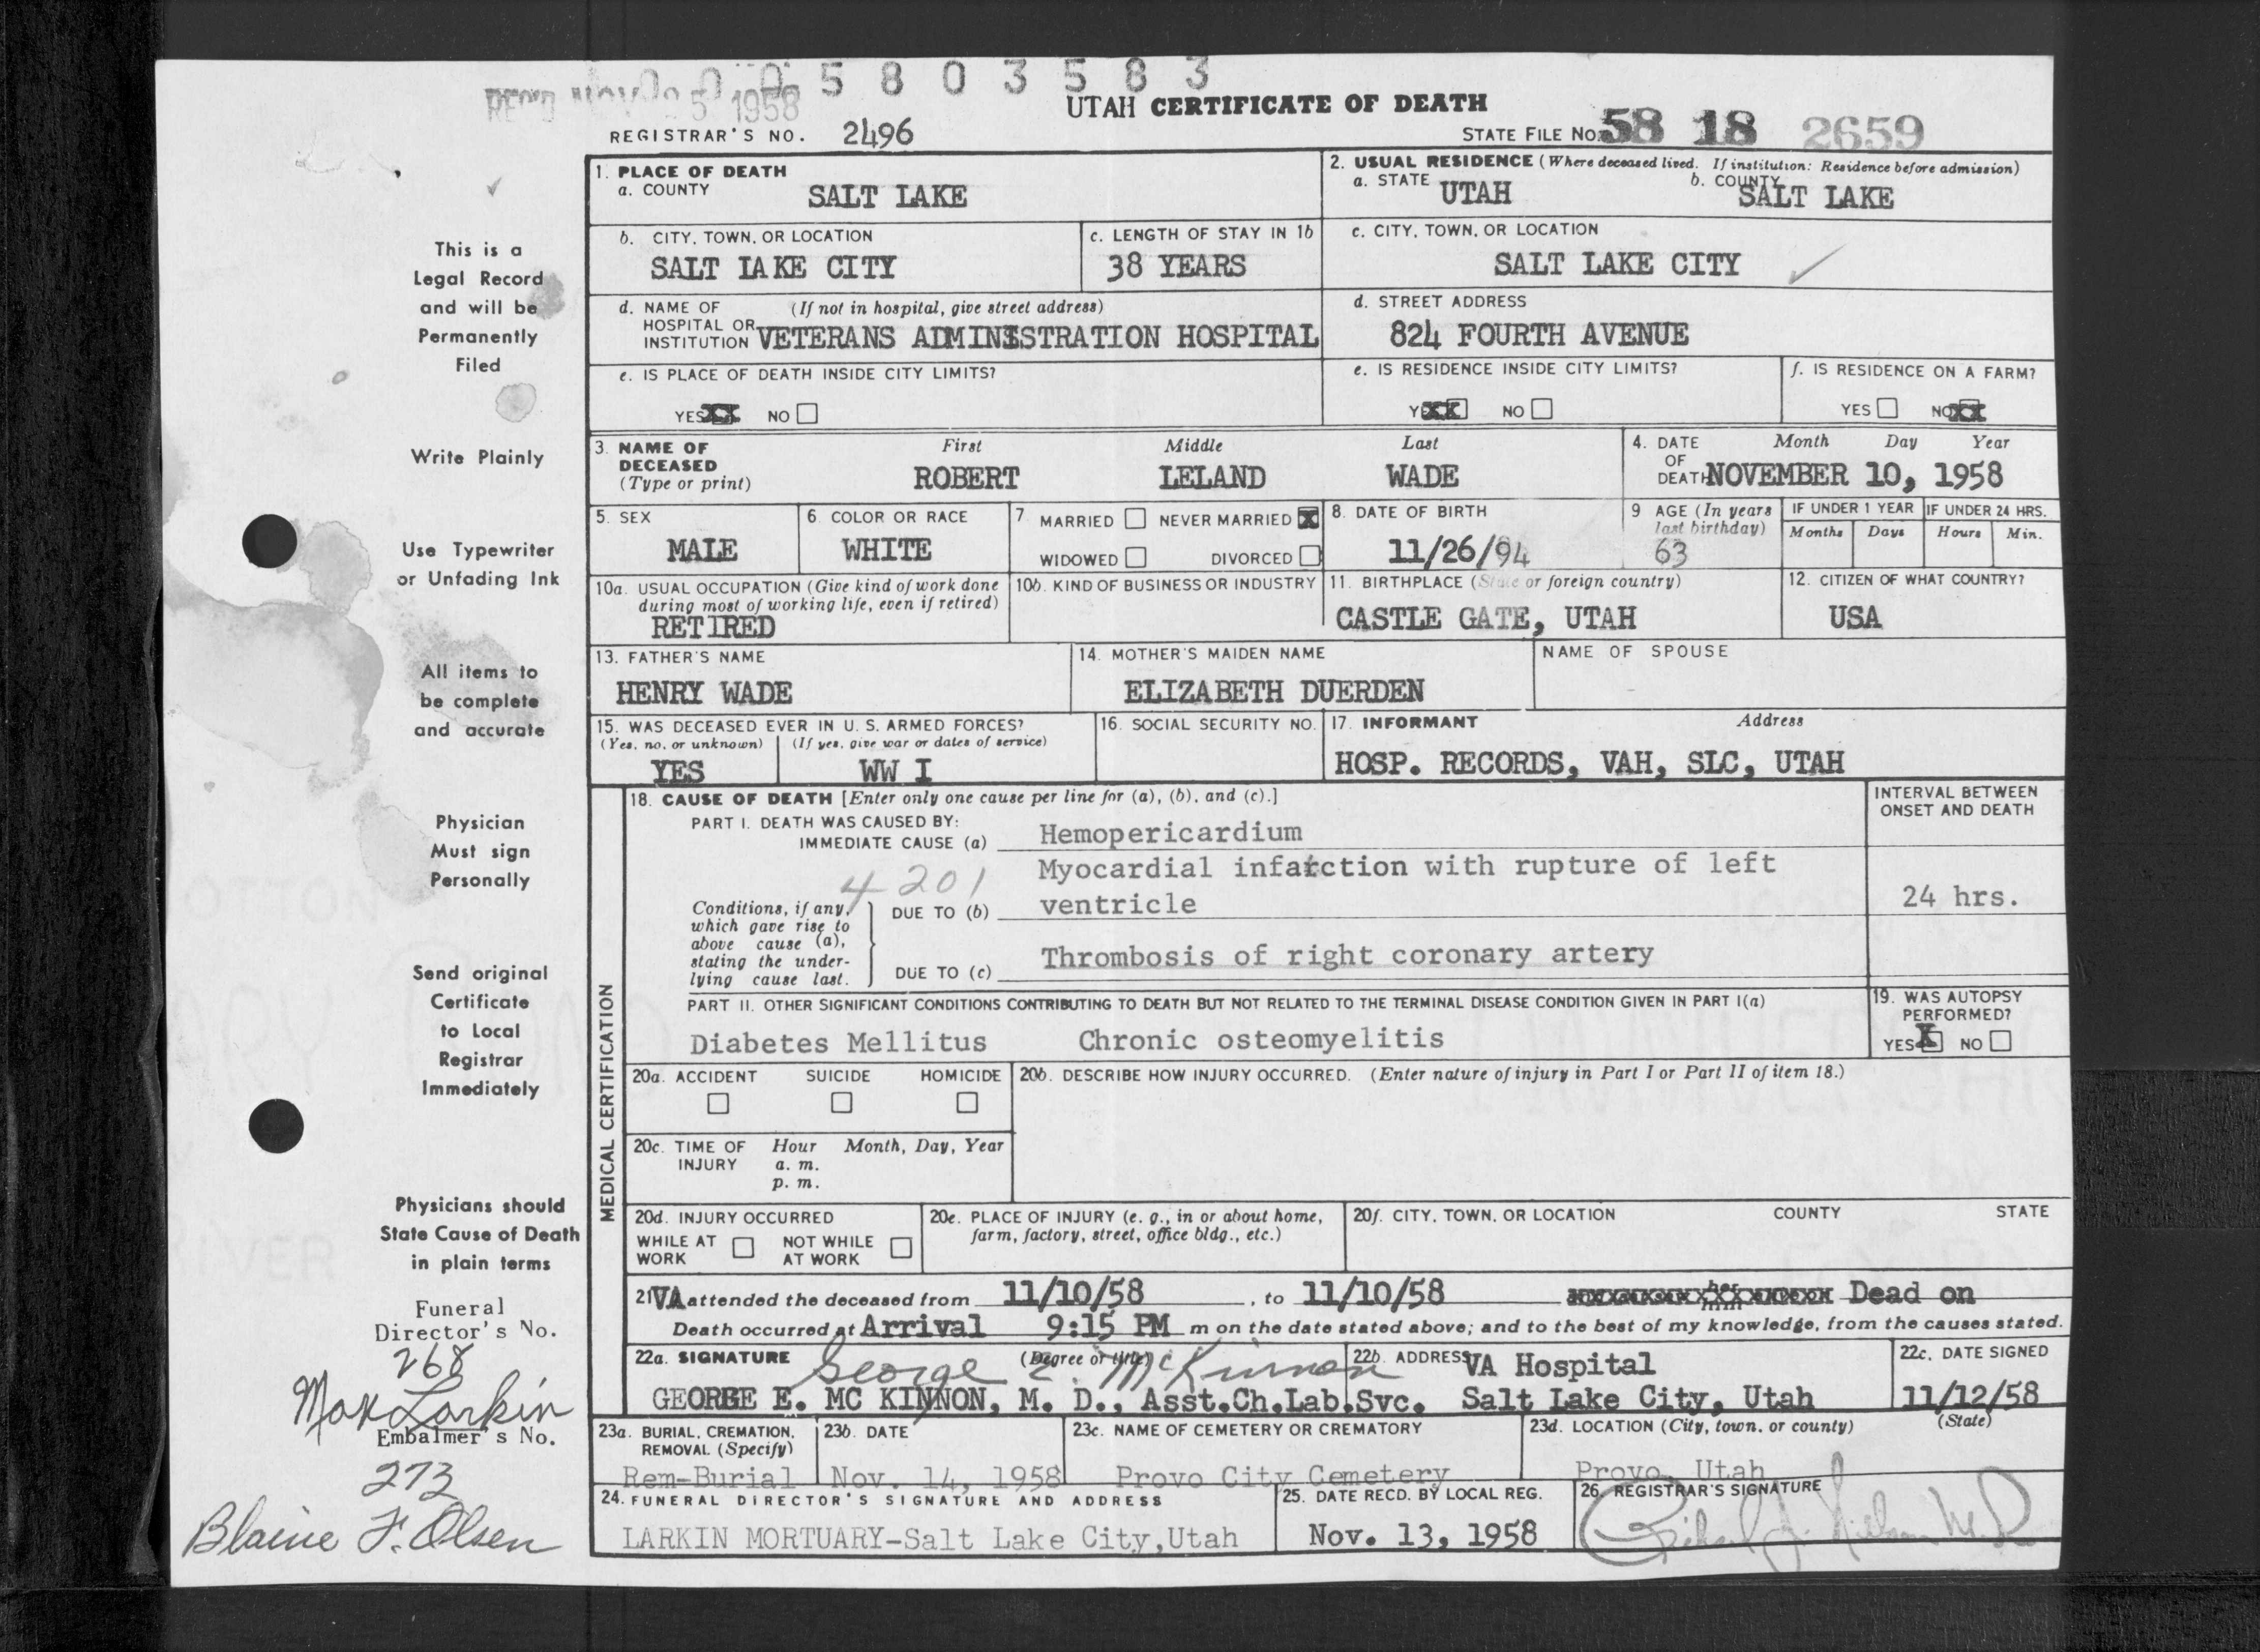 0 0 0 5 8 0 3 5 8 3
REC'D NOV 25 1958
UTAH CERTIFICATE OF DEATH
REGISTRAR'S NO. 2496
STATE FILE NO. 58 18 2659
1. PLACE OF DEATH
a. COUNTY
SALT LAKE
2. USUAL RESIDENCE (Where deceased lived. If institution: Residence before admission)
a. STATE UTAH b. COUNTY SALT LAKE
b. CITY, TOWN, OR LOCATION
SALT LAKE CITY
c. LENGTH OF STAY IN 1b
38 YEARS
c. CITY, TOWN, OR LOCATION
SALT LAKE CITY
d. NAME OF (If not in hospital, give street address)
HOSPITAL OR
INSTITUTION VETERANS ADMINISTRATION HOSPITAL
d. STREET ADDRESS
824 FOURTH AVENUE
e. IS PLACE OF DEATH INSIDE CITY LIMITS?
YES XX NO
e. IS RESIDENCE INSIDE CITY LIMITS?
YES XX NO
f. IS RESIDENCE ON A FARM?
YES NO XX
3. NAME OF
DECEASED
(Type or print)
First Middle Last
ROBERT LELAND WADE
4. DATE OF DEATH Month Day Year
NOVEMBER 10, 1958
5. SEX
MALE
6. COLOR OR RACE
WHITE
7. MARRIED NEVER MARRIED X
WIDOWED DIVORCED
8. DATE OF BIRTH
11/26/94
9 AGE (In years
last birthday)
63
IF UNDER 1 YEAR IF UNDER 24 HRS.
Months Days Hours Min.
10a. USUAL OCCUPATION (Give kind of work done
during most of working life, even if retired)
RETIRED
10b. KIND OF BUSINESS OR INDUSTRY
11. BIRTHPLACE (State or foreign country)
CASTLE GATE, UTAH
12. CITIZEN OF WHAT COUNTRY?
USA
13. FATHER'S NAME
HENRY WADE
14. MOTHER'S MAIDEN NAME
ELIZABETH DUERDEN
NAME OF SPOUSE
15. WAS DECEASED EVER IN U. S. ARMED FORCES?
(Yes, no, or unknown) (If yes, give war or dates of service)
YES WW I
16. SOCIAL SECURITY NO.
17. INFORMANT Address
HOSP. RECORDS, VAH, SLC, UTAH
MEDICAL CERTIFICATION
18. CAUSE OF DEATH [Enter only one cause per line for (a), (b), and (c).]
INTERVAL BETWEEN
ONSET AND DEATH
PART I. DEATH WAS CAUSED BY:
IMMEDIATE CAUSE (a) Hemopericardium
4 201
Myocardial infarction with rupture of left
DUE TO (b) ventricle
24 hrs.
Conditions, if any,
which gave rise to
above cause (a),
stating the under-
lying cause last.
DUE TO (c) Thrombosis of right coronary artery
PART II. OTHER SIGNIFICANT CONDITIONS CONTRIBUTING TO DEATH BUT NOT RELATED TO THE TERMINAL DISEASE CONDITION GIVEN IN PART I(a)
Diabetes Mellitus Chronic osteomyelitis
19. WAS AUTOPSY
PERFORMED?
YES X NO
20a. ACCIDENT SUICIDE HOMICIDE
20b. DESCRIBE HOW INJURY OCCURRED. (Enter nature of injury in Part I or Part II of item 18.)
20c. TIME OF
INJURY
Hour Month, Day, Year
a. m.
p. m.
20d. INJURY OCCURRED
WHILE AT
WORK
NOT WHILE
AT WORK
20e. PLACE OF INJURY (e. g., in or about home,
farm, factory, street, office bldg., etc.)
20f. CITY, TOWN, OR LOCATION COUNTY STATE
21 VA attended the deceased from 11/10/58, to 11/10/58 Dead on
Death occurred at Arrival 9:15 PM m on the date stated above; and to the best of my knowledge, from the causes stated.
22a. SIGNATURE (Degree or title)
George E. McKinnon
GEORGE E. MC KINNON, M. D., Asst.Ch.Lab.Svc.
22b. ADDRESS VA Hospital
Salt Lake City, Utah
22c. DATE SIGNED
11/12/58
23a. BURIAL, CREMATION,
REMOVAL (Specify)
Rem-Burial
23b. DATE
Nov. 14, 1958
23c. NAME OF CEMETERY OR CREMATORY
Provo City Cemetery
23d. LOCATION (City, town, or county) (State)
Provo, Utah
24. FUNERAL DIRECTOR'S SIGNATURE AND ADDRESS
LARKIN MORTUARY-Salt Lake City,Utah
25. DATE RECD. BY LOCAL REG.
Nov. 13, 1958
26. REGISTRAR'S SIGNATURE
This is a
Legal Record
and will be
Permanently
Filed
Write Plainly
Use Typewriter
or Unfading Ink
All items to
be complete
and accurate
Physician
Must sign
Personally
Send original
Certificate
to Local
Registrar
Immediately
Physicians should
State Cause of Death
in plain terms
Funeral
Director's No.
268
Max Larkin
Embalmer's No.
273
Blaine F. Olsen